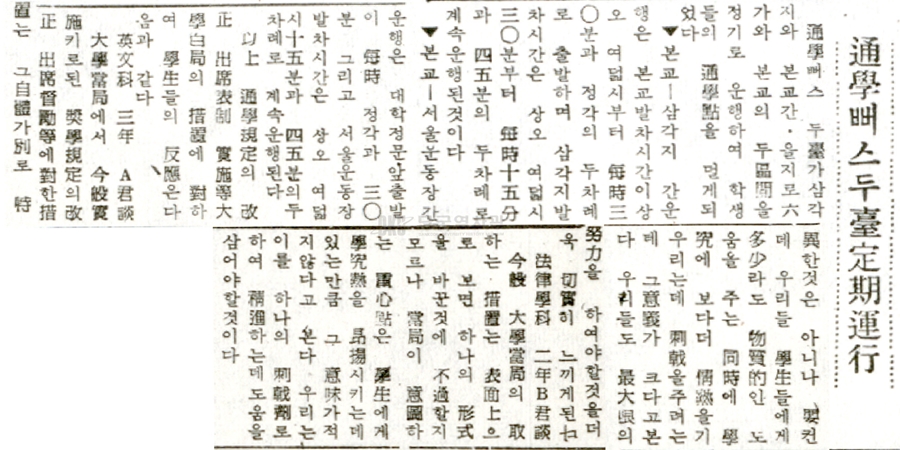 通學뻐스두臺定期運行
通學뻐스 두臺가삼각
지와 본교간·을지로六
가와 본교의 두區間을
정기로 운행하여 학생
들의 通學點을 덜게되
었다
▼본교―삼각지 간운
행은 본교발차시간이상
오 여덟시부터 每時三
〇분과 정각의 두차례
로 출발하며 삼각지발
차시간은 상오 여덟시
三〇분부터 每時十五分
과 四五분의 두차례로
계속운행된것이다
▼본교―서울운동장 간
운행은 대학정문앞출발
이 每時 정각과 三〇
분 그리고 서울운동장
발차시간은 상오 여덟
시十五분과 四五분의두
차례로 계속운행된다
以上 通學規定의 改
正 出席表制 實施等大
學白局의 措置에 對하
여 學生들의 反應은다
음과 같다
英文科 三年 A君談
大學當局에서 今般實
施키로된 奬學規定의改
正 出席督勵等에對한措
置는 그自體가別로 特
異한것은 아니나
데 우리들 學生들에게
多少라도 物質的인 도
움을 주는 同時에 學
究에 보다더 情熱을기
우리는데 刺戟을주려는
데 그意義가 크다고본
다 우리들도 最大限의
努力을 하여야할것을더
욱 切實히 느끼게된다
法律學科 二年B君談
今般 大學當局의 取
하는 措置는 表面上으
로 보면 하나의 形式
을 바꾼것에 不過할지
모르나 當局이 意圖하
는 重心點은 學生에게
學究熱을 昂揚시키는데
있는만큼 그 意味가적
지않다고 본다 우리는
이를 하나의 刺戟劑로
하여 精進하는데도움을
삼어야할것이다